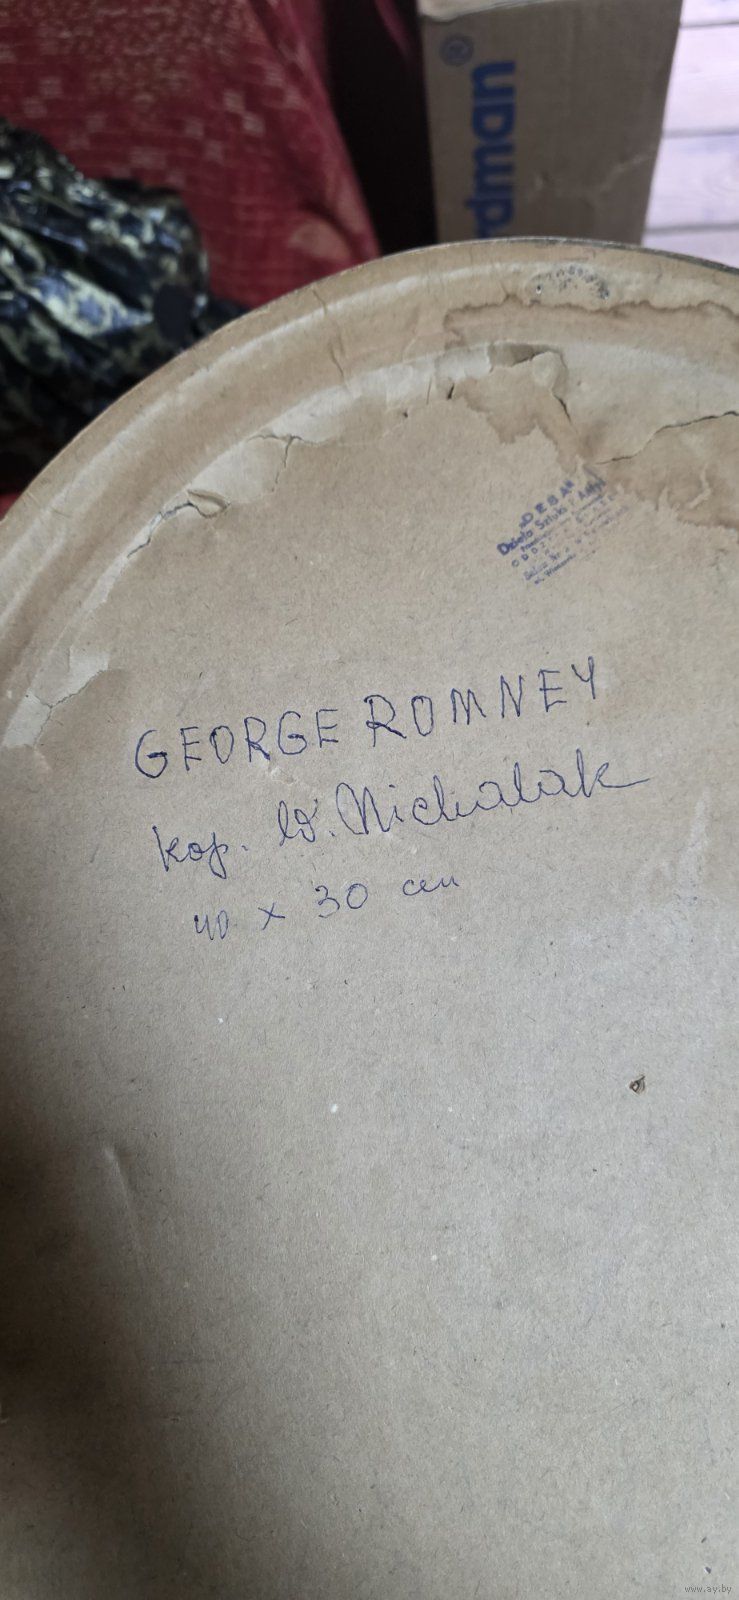 rdman®
DESA
Dzieła Sztuki i Antyki
GEORGE ROMNEY
kop. W. Michalak
40 x 30 cm
www.ay.by